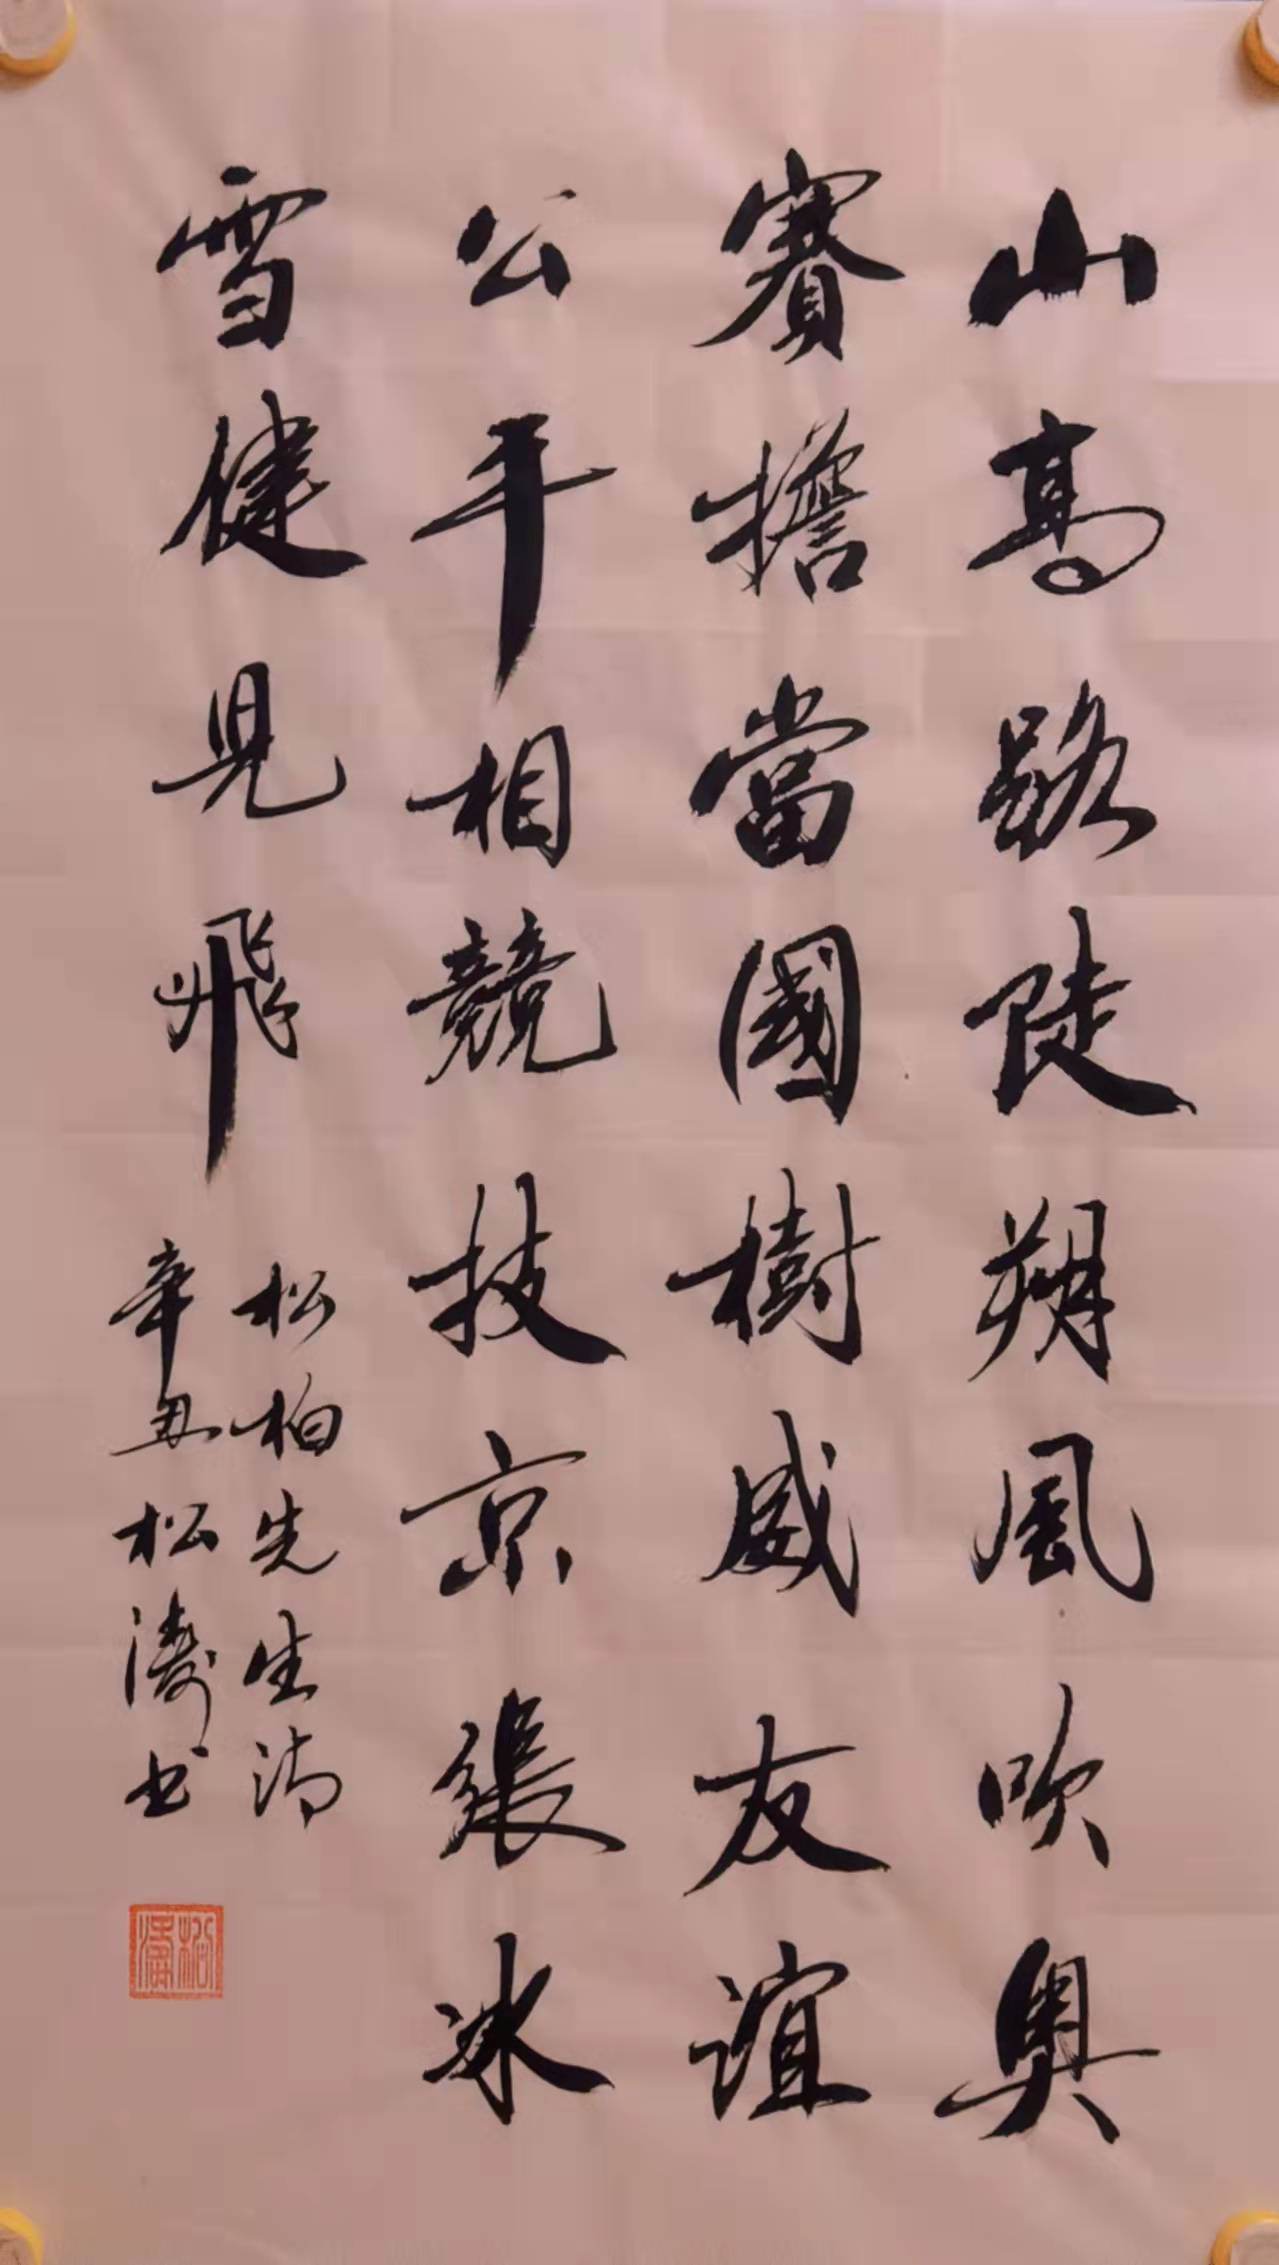 山高路陡朔風吹奥
賽擔當國樹威友誼
公平相競技京張冰
雪健兒飛
松柏先生清
辛丑松濤书
松濤